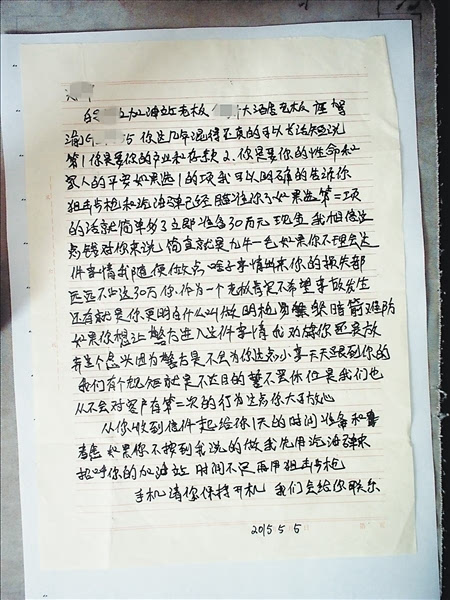 加油站老板 大酒店老板 座驾
渝 5 你这几年混得不真的可以长话短说
第1你是要你的产业和存款2、你是要你的性命和
家人的平安如果选1的项我可以明确的告诉你
狙击步枪和汽油弹已经瞄准你了如果选第二项
的话就简单多了立即准备30万元现金我相信这
点钱对你来说简直就是九牛一毛如果你不理会这
件事情我随便做点啥子事情出来你的损失都
远远不止这30万你作为一个老板肯定不希望事故发生
还有就是你更明白什么叫做明枪易躲暗箭难防
如果你想让警方进入这件事情我劝你还是放
弃这个念头因为警方是不会为你这点小事天天跟到你的
我们有个规矩就是不达目的誓不罢休但是我们也
从不会对客户有第二次的行为这点你大可放心
从你收到信件起给你1天的时间准备和
考虑如果你不按到我说的做我先用汽油弹来
招呼你的加油站 时间不足再用狙击步枪
手机请你保持开机 我们会给你联系
2015 5 5